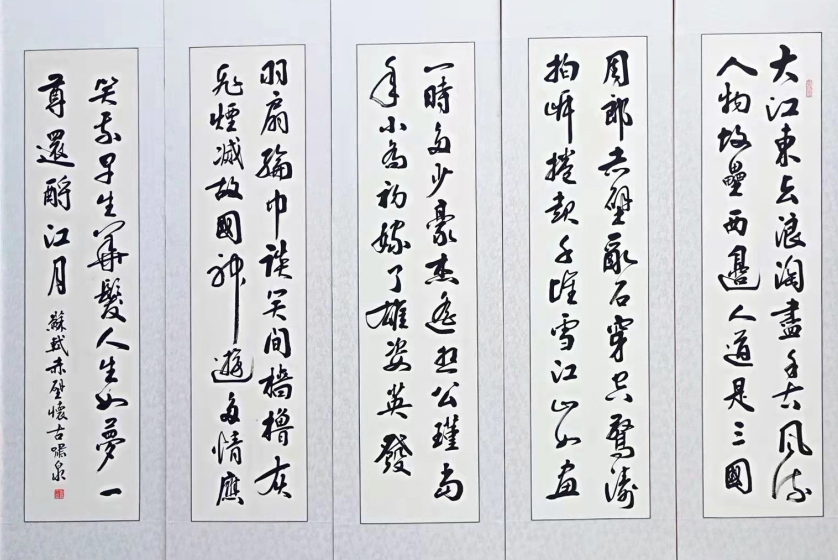 大江東去浪淘盡千古風流
人物故壘西邊人道是三國
周郎赤壁亂石穿空驚濤
拍岸捲起千堆雪江山如畫
一時多少豪杰遙想公瑾當
年小喬初嫁了雄姿英發
羽扇綸巾談笑間檣櫓灰
飛煙滅故國神遊多情應
笑我早生華髮人生如夢一
尊還酹江月
蘇軾赤壁懷古嘯泉